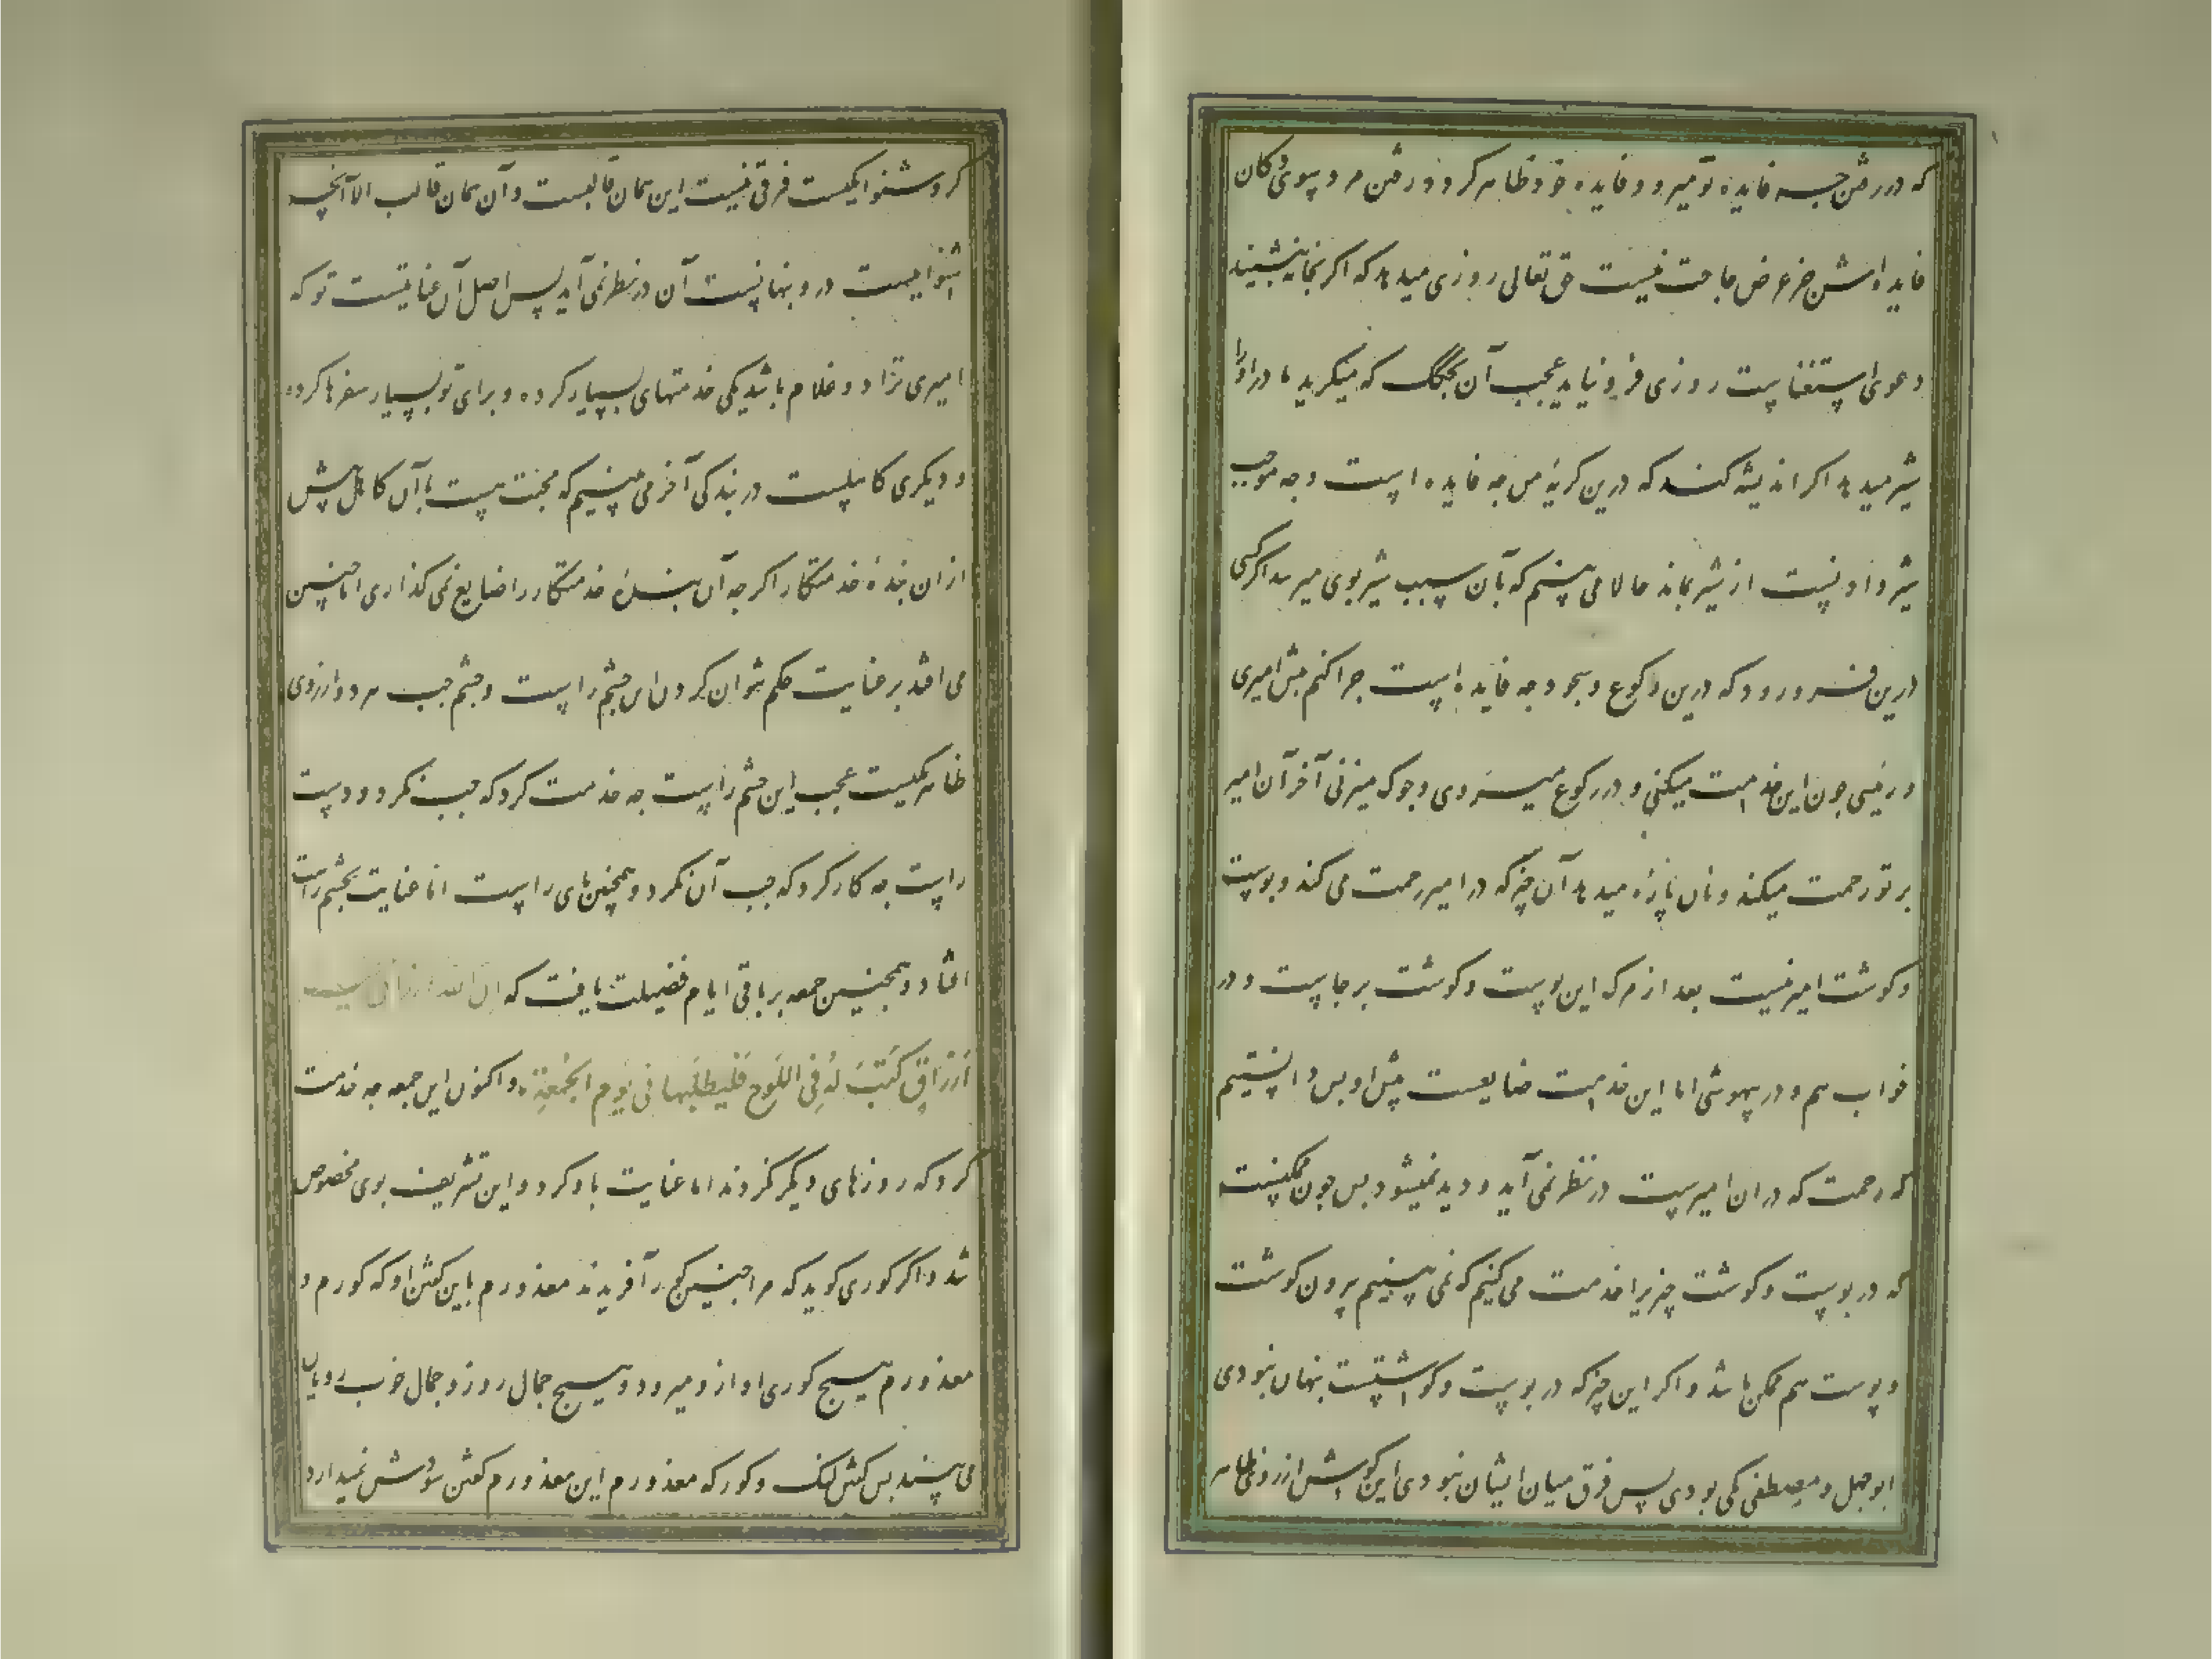 که در رفتن چه فایده تو میرو و فایده خود ظاهر کردد رفتن مرد بسوی دکان
فایده اش جز عرض حاجت نیست حق تعالی روزی میدهد که اکر بخانه بنشیند
دعوی استغناست روزی فرو نیاید عجب آن بچکک که میکرید مادر او را
شیر میدهد اکر اندیشه کند که درین کریهٔ من چه فایده است و چه موجب
شیر دادنست از شیر بماند حالا می بینیم که بآن سبب شیر بوی میرسد اکر کسی
درین فرو رود که درین رکوع و سجود چه فایده است چرا کنم پیش امیری
و رئیسی چون این خدمت میکنی و در رکوع میروی و چوک میزنی آخر آن امیر
بر تو رحمت میکند و نان پاره میدهد آن چیز که در امیر رحمت می کند و پوست
و کوشت امیر نیست بعد از مرک این پوست و کوشت بر جاست و در
خواب هم و در بیهوشی اما این خدمت ضایعست پیش او پس دانستیم
که رحمت که در ان امیرست در نظر نمی آید و دیده نمیشود پس چون ممکنست
که در پوست و کوشت چیزیرا خدمت می کنیم که نمی بینیم بیرون کوشت
و پوست هم ممکن باشد و اکر این چیز که در پوست و کوشتست پنهان نبودی
ابوجهل و مصطفی یکی بودی پس فرق میان ایشان نبودی این کوش از روی ظاهر
کر و شنوا یکیست فرقی نیست این همان قالبست و آن همان قالب الا آنچه
شنواییست درو پنهانست آن در نظر نمی آید پس اصل آن عنایتست تو که
امیری ترا دو غلام باشد یکی خدمتهای بسیار کرده و برای تو بسیار سفرها کرده
و دیکری کاهلست در بندکی آخر می بینیم که محبت هست باآن کاهل بیش
از ان بندهٔ خدمتکار اکر چه آن بندهٔ خدمتکار را ضایع نمی کذاری اما چنین
می افتد بر عنایت حکم نتوان کردن این چشم راست و چشم چپ هر دو از روی
ظاهر یکیست عجب این چشم راست چه خدمت کرد که چپ نکرد و دست
راست چه کار کرد که چپ آن نکرد و همچنین پای راست اما عنایت بچشم راست
افتاد و همچنین جمعه بر باقی ایام فضیلت یافت که ان لله ارزاقا
اَرزاقٍ کُتِبَ لَهُ فِی اللَوحِ فَلیَطلُبها فی یَومِ الجُمعَةِ و اکنون این جمعه چه خدمت
کرد که روزهای دیکر نکردند اما عنایت باو کرد و این تشریف بوی مخصوص
شد و اکر کوری کوید که مرا چنین کور آفریدند معذورم باین کفتن او که کورم و
معذورم هیچ کوری او ازو میرود و هیچ جمال روز و جمال خوب رویان
می بیند پس کفتن لنک و کور که معذورم این معذورم کفتن سودش نمیدارد